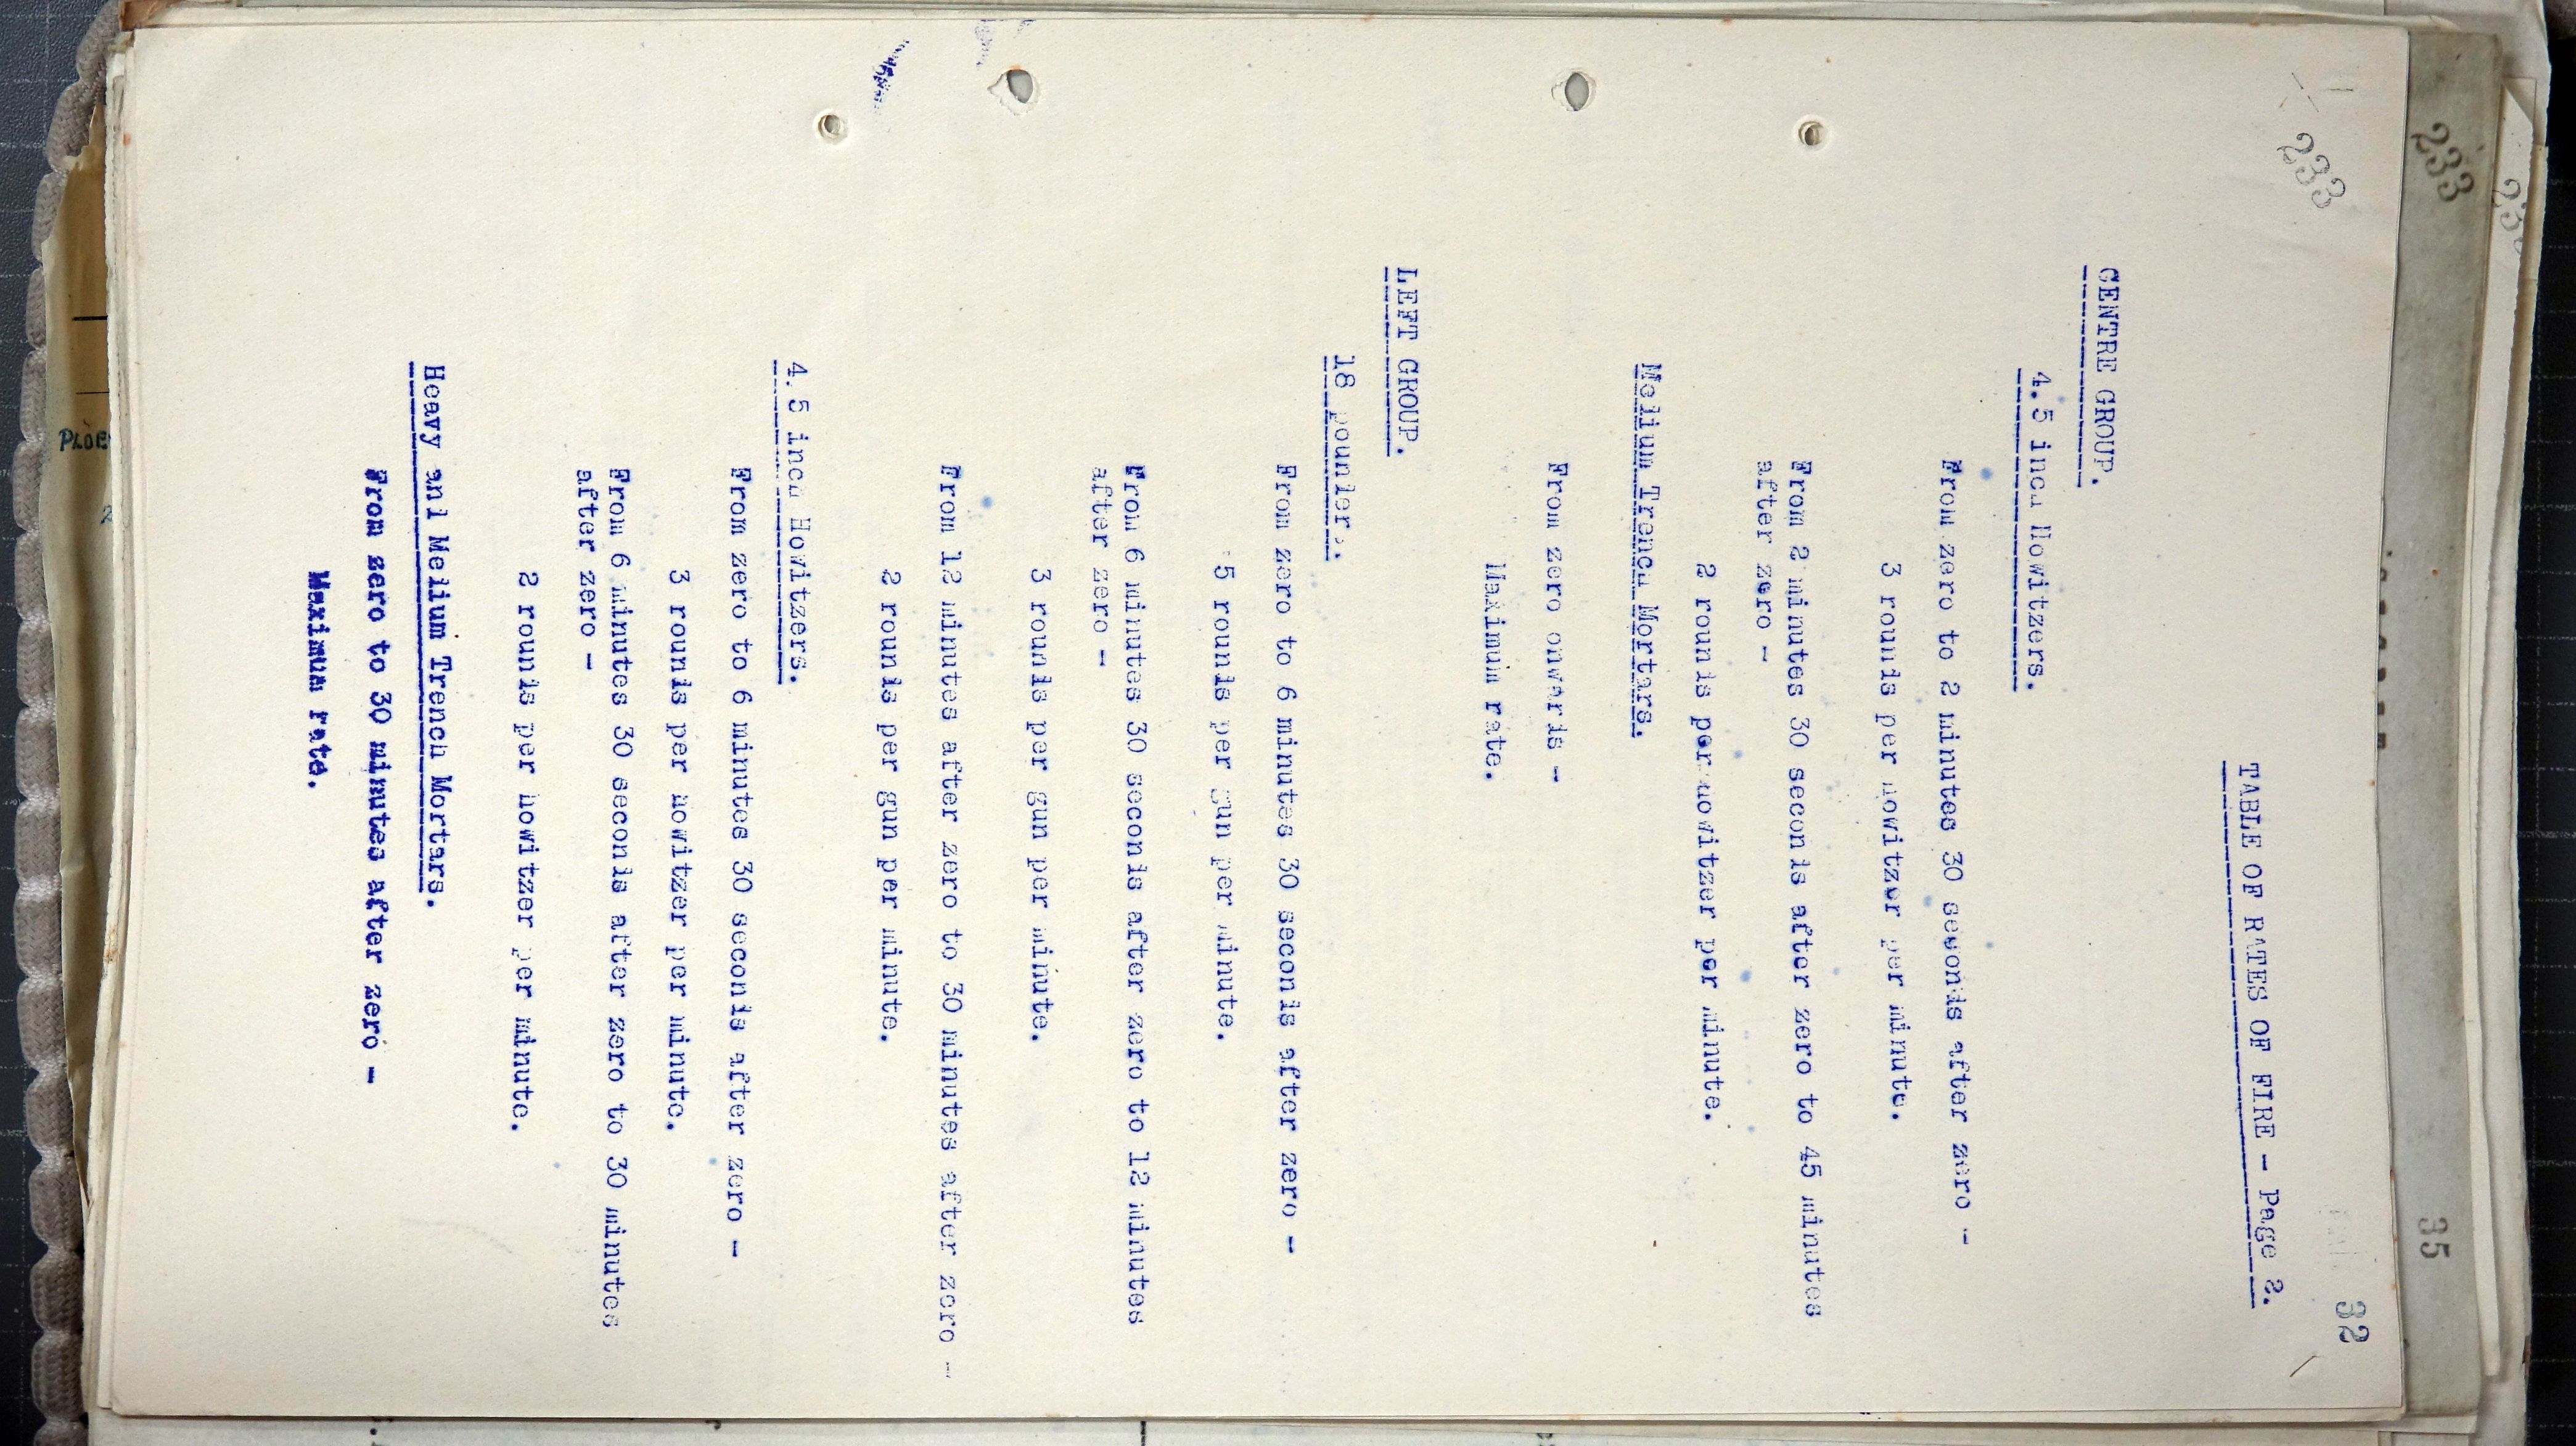 233
32
TABLE OF RATES OF FIRE - Page 2.
CENTRE GROUP.
4.5 inch Howitzers.
From zero to 2 minutes 30 seconds after zero -
3 rounds per howitzer per minute.
From 2 minutes 30 seconds after zero to 45 minutes
after zero -
2 rounds per howitzer per minute.
Medium Trench Mortars.
From zero onwards -
Maximum rate.
LEFT GROUP.
18 pounder.
From zero to 6 minutes 30 seconds after zero -
5 rounds per gun per minute.
From 6 minutes 30 seconds after zero to 12 minutes
after zero -
3 rounds per gun per minute.
From 12 minutes after zero to 30 minutes after zero -
2 rounds per gun per minute.
4.5 inch Howitzers.
From zero to 6 minutes 30 seconds after zero -
3 rounds per howitzer per minute.
From 6 minutes 30 seconds after zero to 30 minutes
after zero -
2 rounds per howitzer per minute.
Heavy and Medium Trench Mortars.
From zero to 30 minutes after zero -
Maximum rate.
233
35